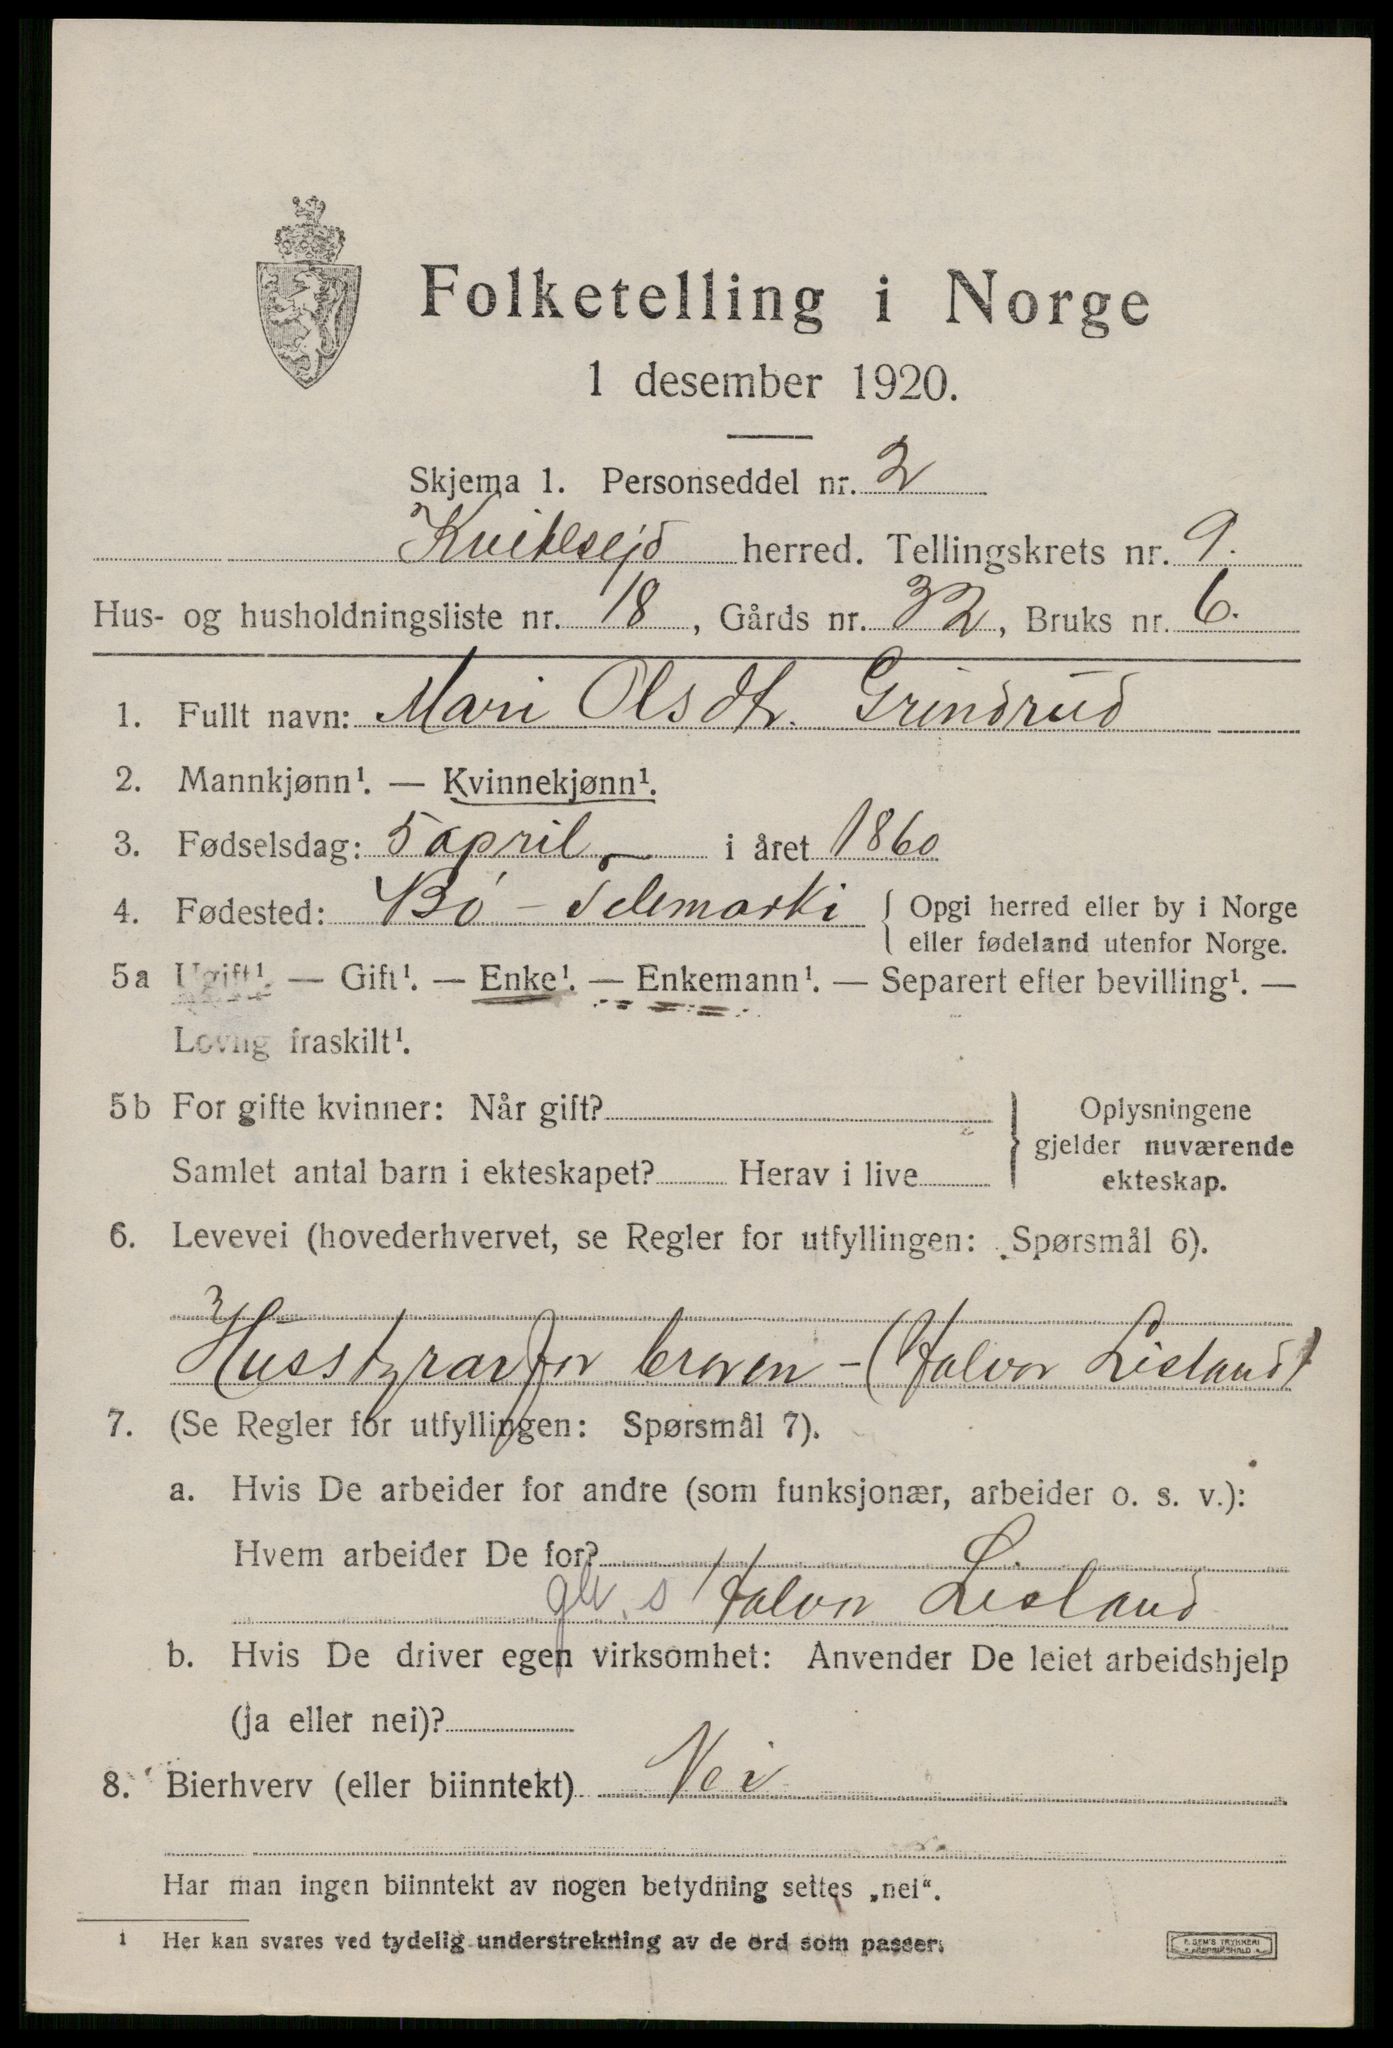 Folketelling i Norge
1 desember 1920.
Skjema 1. Personseddel nr. 2
Kviteseid herred. Tellingskrets nr. 9.
Hus- og husholdningsliste nr. 18, Gårds nr. 32, Bruks nr. 6.
1. Fullt navn: Mari Olsdtr. Grindrud
2. Mannkjønn¹. — Kvinnekjønn¹.
3. Fødselsdag: 5 april i året 1860
4. Fødested: Bø - Telemarki { Opgi herred eller by i Norge
eller fødeland utenfor Norge.
5a Ugift¹. — Gift¹. — Enke¹. — Enkemann¹. — Separert efter bevilling¹. —
Lovlig fraskilt¹.
5b For gifte kvinner: Når gift?
Samlet antal barn i ekteskapet? Herav i live
Oplysningene
gjelder nuværende
ekteskap.
6. Levevei (hovederhvervet, se Regler for utfyllingen: Spørsmål 6).
Husstyrar for broren - (Halvor Lisland)
7. (Se Regler for utfyllingen: Spørsmål 7).
a. Hvis De arbeider for andre (som funksjonær, arbeider o. s. v.):
Hvem arbeider De for?
s Halvor Lisland
b. Hvis De driver egen virksomhet: Anvender De leiet arbeidshjelp
(ja eller nei)?
8. Bierhverv (eller biinntekt) Nei
Har man ingen biinntekt av nogen betydning settes „nei“.
¹ Her kan svares ved tydelig understrekning av de ord som passer.
F. SEM'S TRYKKERI
FREDRIKSHALD